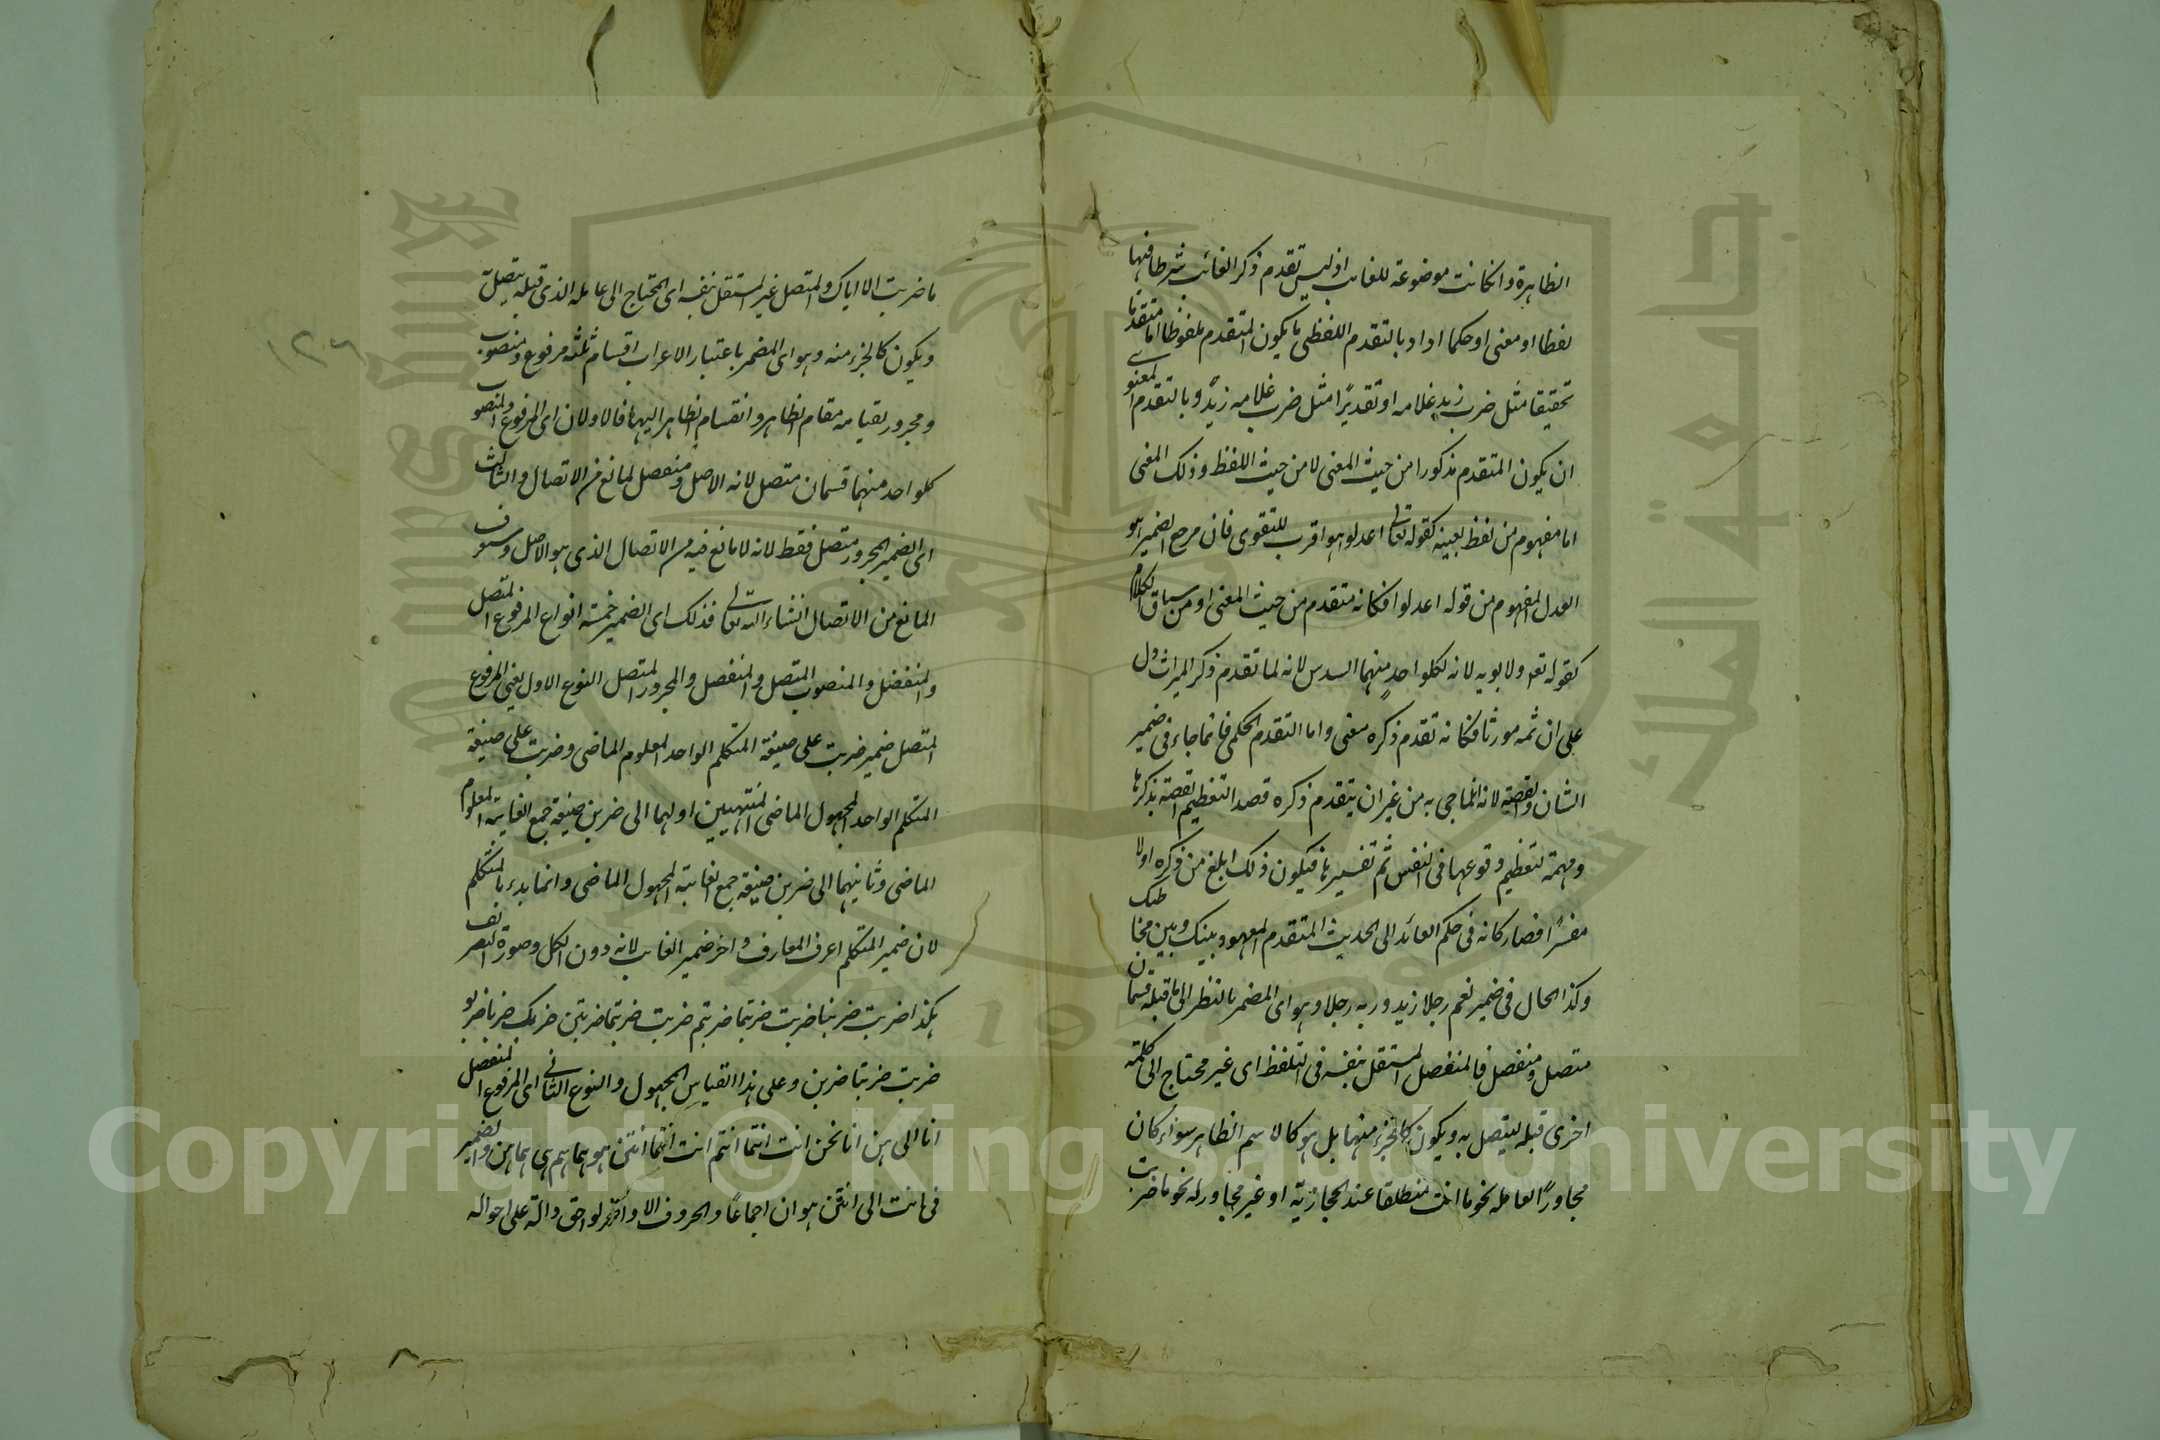 الظاهرة وان كانت موضوعة للغائب اذ ليس تقدم ذكر الغائب شرطا فيها
لفظا او معنى او حكما اراد بالتقدم اللفظي ما يكون المتقدم ملفوظا اما متقدما
تحقيقا مثل ضرب زيد غلامه او تقديرًا مثل ضرب غلامه زيدٌ وبالتقدم المعنوي
ان يكون المتقدم مذكورا من حيث المعنى لا من حيث اللفظ وذلك المعنى
اما مفهوم من لفظ بعينه كقوله تعالى اعدلوا هو اقرب للتقوى فان مرجع الضمير هو
العدل المفهوم من قوله اعدلوا فكانه متقدم من حيث المعنى او من سياق الكلام
كقوله تعالى ولابويه لانه لكلواحدٍ منهما السدس لانه لما تقدم ذكر الميراث دل
على ان ثمه مورثا فكانه تقدم ذكره معنى واما التقدم الحكمي فانما جاء في ضمير
الشان والقصة لانه انما جيء به من غير ان يتقدم ذكره قصدا لتعظيم القصة بذكرها
ومهمة لتعظيم وقوعها في النفس ثم تفسيرها فيكون ذلك ابلغ من ذكره اولا
مفسرًا فصار كانه في حكم العائد الى الحديث المتقدم المعهود بينك وبين مخاطبك
وكذا الحال في ضمير نعم رجلا زيد وربه رجلا وهو اى المضمر بالنظر الى ما قبله قسمان
متصل ومنفصل فالمنفصل المستقل بنفسه في التلفظ اى غير محتاج الى كلمة
اخرى قبله ليتصل به ويكون كالجزء منها بل هو كالاسم الظاهر سواء كان
مجاورًا لعامله نحو ما انت منطلقا عند الحجازية او غير مجاور له نحو ما ضربت
ما ضربت الا اياك والمتصل غير المستقل بنفسه اى المحتاج الى عامله الذى قبله يتصل
ويكون كالجزء منه وهو اى المضمر باعتبار الاعراب اقسام ثلثه مرفوع ومنصوب
ومجرور لقيامه مقام الظاهر وانقسام الظاهر اليها فالاولان اى المرفوع والمنصوب
كلواحد منهما قسمان متصل لانه الاصل ومنفصل لمانع من الاتصال والثالث
اى الضمير المجرور متصل فقط لانه لا مانع فيه من الاتصال الذى هو الاصل وسوف
المانع من الاتصال انشاء الله تعالى فذلك اى الضمير خمسة انواع المرفوع المتصل
والمنفصل والمنصوب المتصل والمنفصل والمجرور المتصل النوع الاول يعني المرفوع
المتصل ضمير ضربت على صيغة المتكلم الواحد المعلوم الماضى وضربت على صيغة
المتكلم الواحد المجهول الماضى المنتهيين اولهما الى ضربن صيغة جمع الغايبة المعلوم
الماضى وثانيهما الى ضربن صيغة جمع الغايبة المجهول الماضى وانما بدء بالمتكلم
لان ضمير المتكلم اعرف المعارف واخر ضمير الغائب لانه دون الكل وصورة التصريف
هكذا ضربت ضربنا ضربت ضربتما ضربتم ضربت ضربتما ضربتن ضرب ضربا ضربو
ضربت ضربتا ضربن وعلى هذا القياس المجهول والنوع الثاني اى المرفوع المنفصل
انا الى هن انا نحن انت انتما انتم انت انتما انتن هو هما هم هى هما هن والضمير
في انت الى انتن هو ان اجماعًا والحروف الاواخر لواحق دالة على احواله
Copyright © King Saud University
جامعة الملك سعود
King Saud University
1957